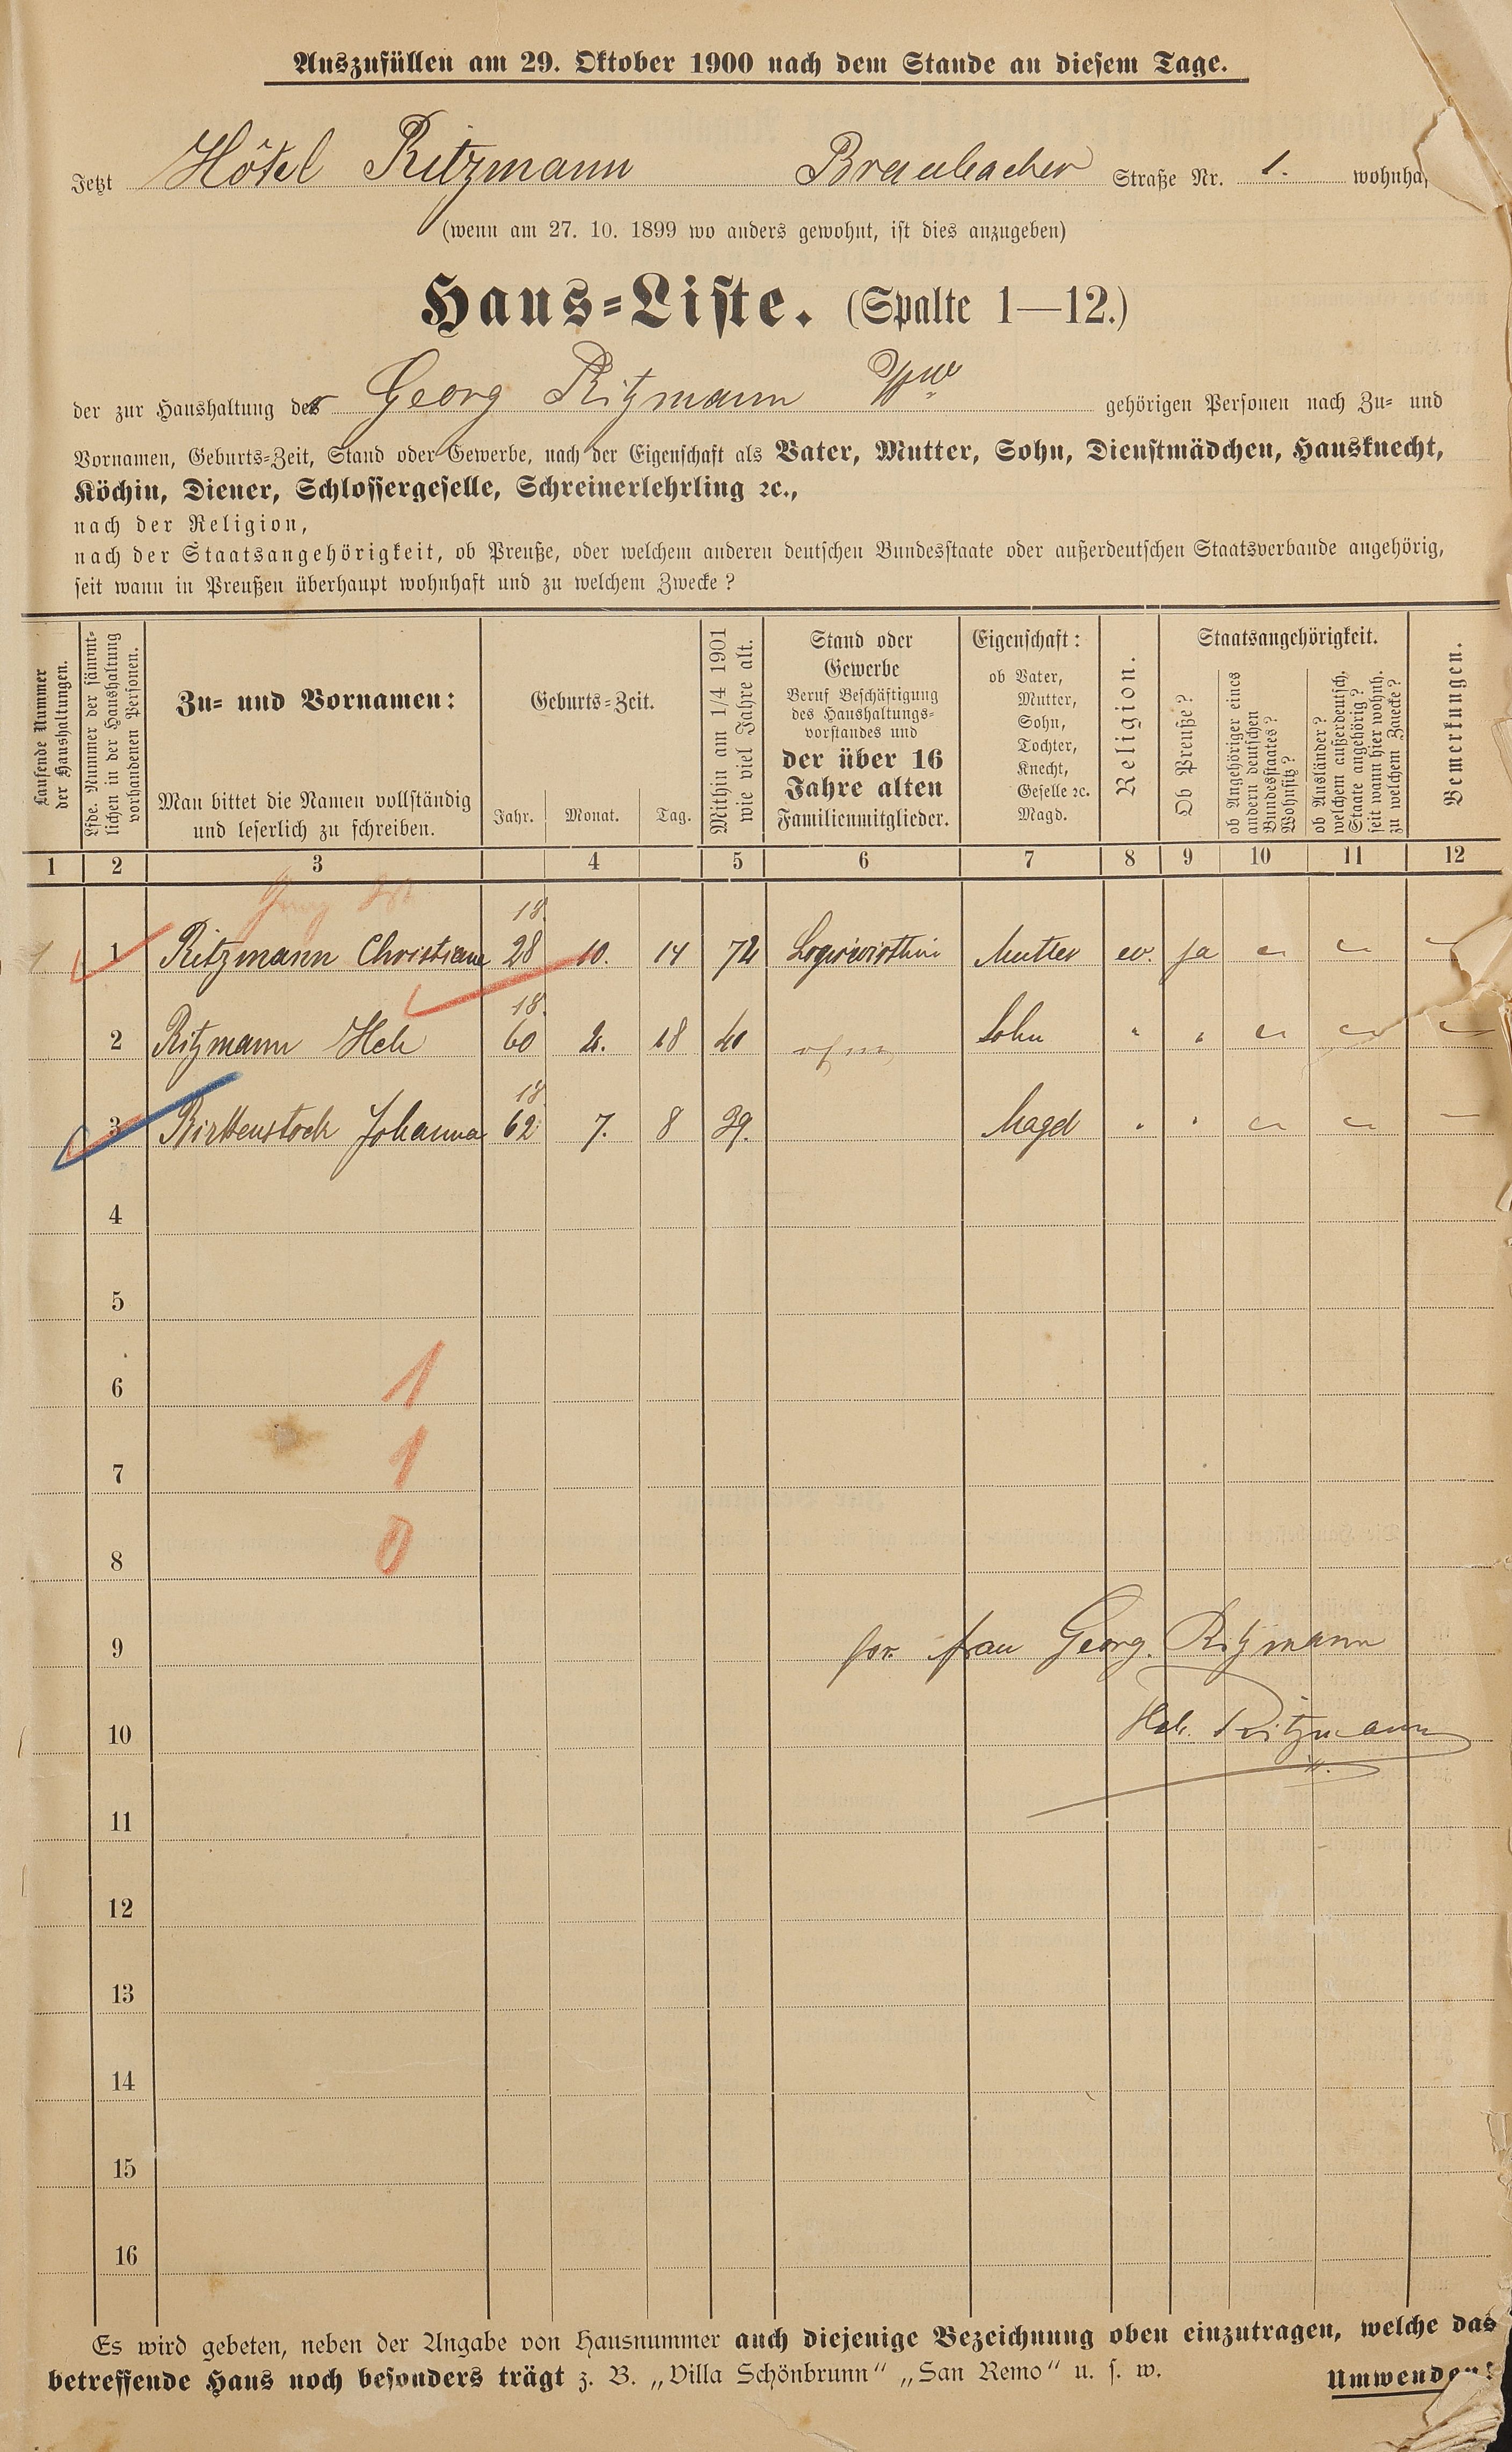 Auszufüllen am 29. Oktober 1900 nach dem Stande an diesem Tage.
Jetzt Hôtel Ritzmann Braubacher Straße Nr. 1. wohnhaf
(wenn am 27. 10. 1899 wo anders gewohnt, ist dies anzugeben)
Haus-Liste. (Spalte 1—12.)
der zur Haushaltung der Georg Ritzmann Ww gehörigen Personen nach Zu- und
Vornamen, Geburts-Zeit, Stand oder Gewerbe, nach der Eigenschaft als Vater, Mutter, Sohn, Dienstmädchen, Hausknecht,
Köchin, Diener, Schlossergeselle, Schreinerlehrling ꝛc.,
nach der Religion,
nach der Staatsangehörigkeit, ob Preuße, oder welchem anderen deutschen Bundesstaate oder außerdeutschen Staatsverbande angehörig,
seit wann in Preußen überhaupt wohnhaft und zu welchem Zwecke?
Laufende Nummer
der Haushaltungen.
Lfde. Nummer der sämmt-
lichen in der Haushaltung
vorhandenen Personen.
Zu- und Vornamen:
Man bittet die Namen vollständig
und leserlich zu schreiben.
Geburts-Zeit.
Jahr. Monat. Tag.
Mithin am 1/4 1901
wie viel Jahre alt.
Stand oder
Gewerbe
Beruf Beschäftigung
des Haushaltungs-
vorstandes und
der über 16
Jahre alten
Familienmitglieder.
Eigenschaft:
ob Vater,
Mutter,
Sohn,
Tochter,
Knecht,
Geselle ꝛc.
Magd.
Religion.
Staatsangehörigkeit.
Ob Preuße?
ob Angehöriger eines
andern deutschen
Bundesstaates?
Wohnsitz?
ob Ausländer?
welchem außerdeutsch.
Staate angehörig?
seit wann hier wohnh.
zu welchem Zwecke?
Bemerkungen.
1 2 3 4 5 6 7 8 9 10 11 12
18.
1 1 Ritzmann Christiane 28 10. 14 72 Logirwirthin Mutter ev. ja
18.
2 Ritzmann Hch 60 2. 18 40 Sohn " "
18.
3 Birkenstock Johanna 62 7. 8 39. Magd " "
4
5
6 1
7 1
8 0
9 for. frau Georg. Ritzmann
10 Hch. Ritzmann
11
12
13
14
15
16
Es wird gebeten, neben der Angabe von Hausnummer auch diejenige Bezeichnung oben einzutragen, welche das
betreffende Haus noch besonders trägt z. B. „Villa Schönbrunn“ „San Remo“ u. s. w. Umwenden!